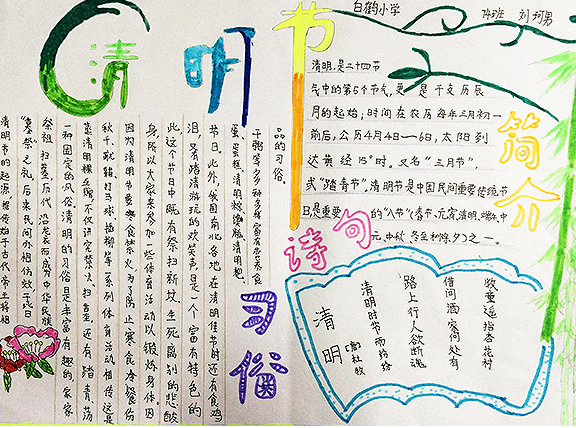 清明节
白鹤小学 刘
简介
清明,是二十四节
气中的第5个节气,更是干支历辰
月的起始;时间在农历每年三月初一
前后,公历4月4日—6日,太阳到
达黄经15°时,又名“三月节”,
或“踏青节”,清明节是中国民间重要传统节
日,是重要的“八节”(春节、元宵、清明、端午、中
元、中秋、冬至和除夕)之一。
诗句
清明
(唐)杜牧
清明时节雨纷纷
路上行人欲断魂
借问酒家何处有
牧童遥指杏花村
习俗
清明节的起源,据传始于古代帝王将相
“墓祭”之礼,后来民间亦相仿效,于此日
祭祖扫墓,历代沿袭而成为中华民族
一种固定的风俗。清明的习俗且是丰富有趣的,家家
蒸清明粿互赠,不仅讲究禁火、扫墓,还有踏青、荡
秋千、蹴鞠、打马球、插柳等一系列体育活动,相传这是
因为清明节要寒食禁火,为了防止寒食冷餐伤
身,所以大家来参加一些体育活动,以锻炼身体。因
此,这个节日中既有祭扫新坟生死离别的悲酸
泪,又有踏清游玩的欢笑声,是一个富有特色的
节日。此外,我国南北各地在清明佳节时还有食鸡
蛋、蛋糕、清明粽、馍糍、清明粑、
干粥等多种多样富有营养食
品的习俗。